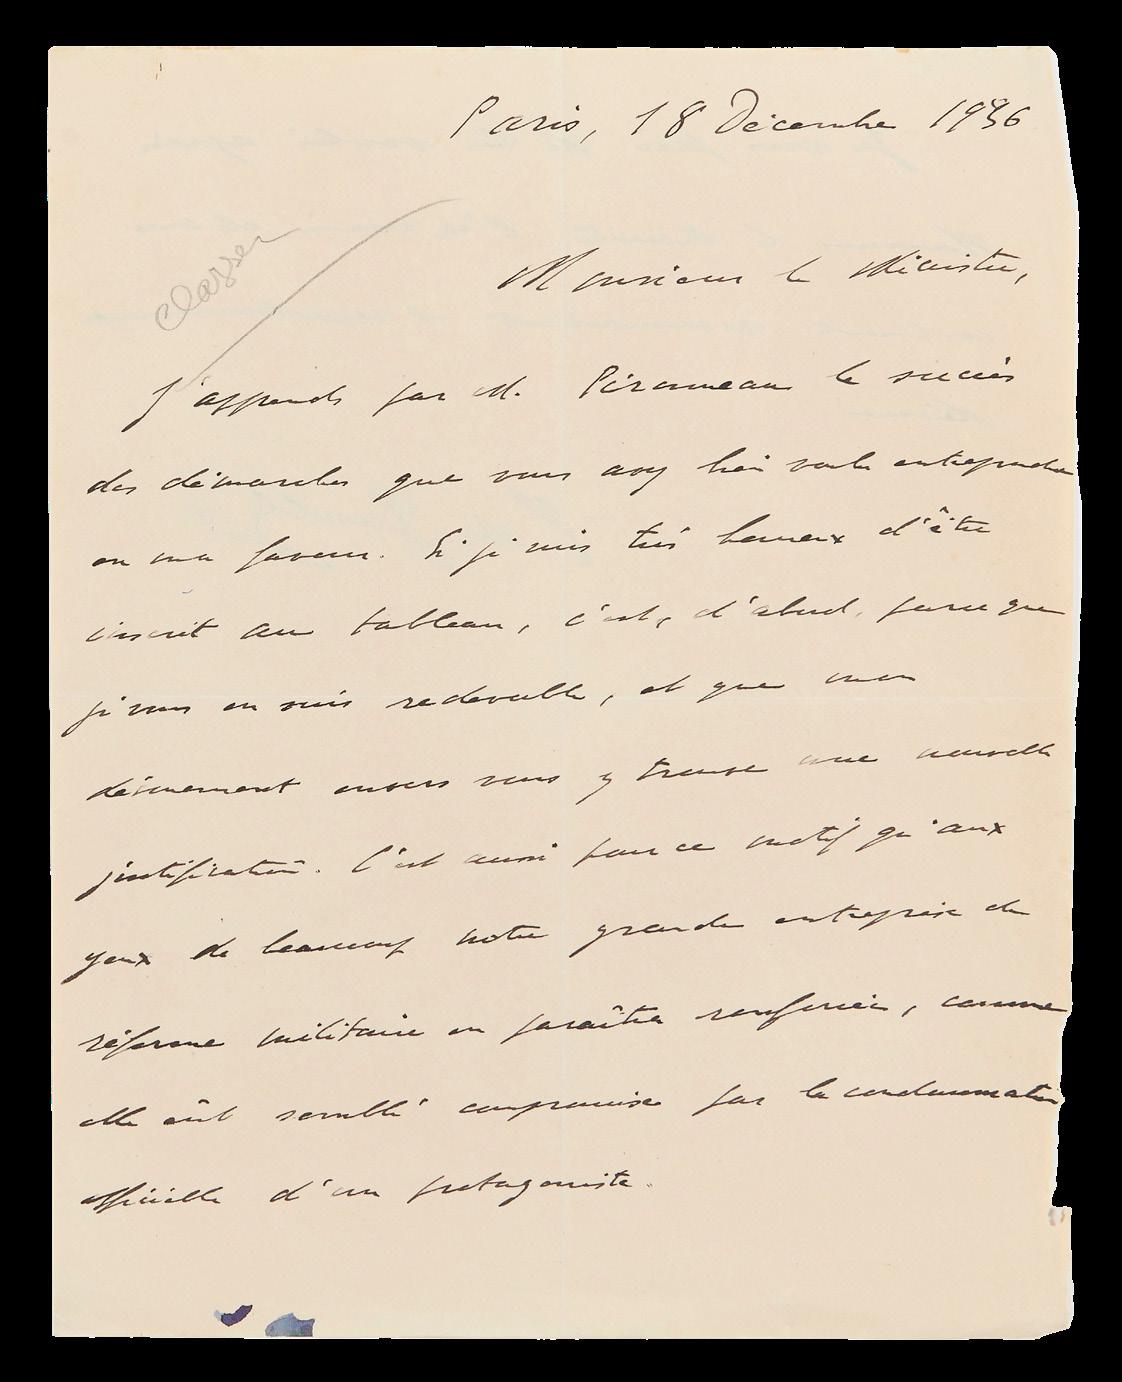 Paris, 18 Décembre 1936
classer
Monsieur le Ministre,
J'apprends par M. le succès
des démarches que vous avez bien voulu entreprendre
en ma faveur. Si je suis très heureux d'être
inscrit au tableau, c'est, d'abord, parce que
je vous en suis redevable, et que mon
dévouement envers vous y trouve une nouvelle
justification. C'est aussi pour ce motif qu'aux
yeux de beaucoup notre grande entreprise de
réforme militaire en paraîtra renforcée, comme
elle eût semblé compromise par la condamnation
officielle d'un protagoniste.